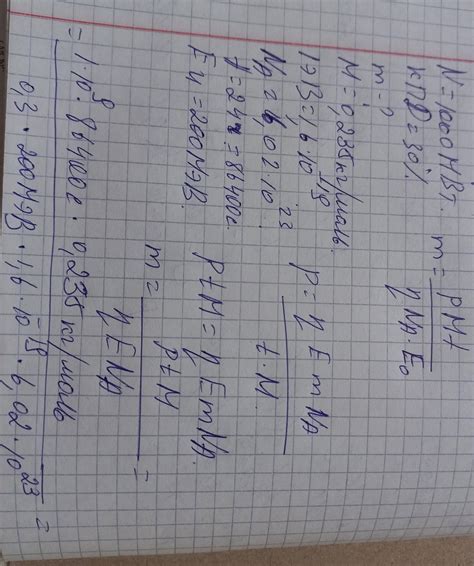 N = 1000 МВт.
КПД = 30%
m - ?
M = 0,235 кг/моль.
1эВ = 1,6·10⁻¹⁹
N_A = 6,02·10²³
t = 24ч = 86400с.
E₄ = 200МэВ.
m = PMt / η N_A · E₀
P = η E m N_A / t · M.
P t M = η E m N_A.
m = P t M / η E N_A =
= 1·10⁹ · 86400с · 0,235 кг/моль / 0,3 · 200МэВ · 1,6 · 10⁻¹⁹ · 6,02 · 10²³ =